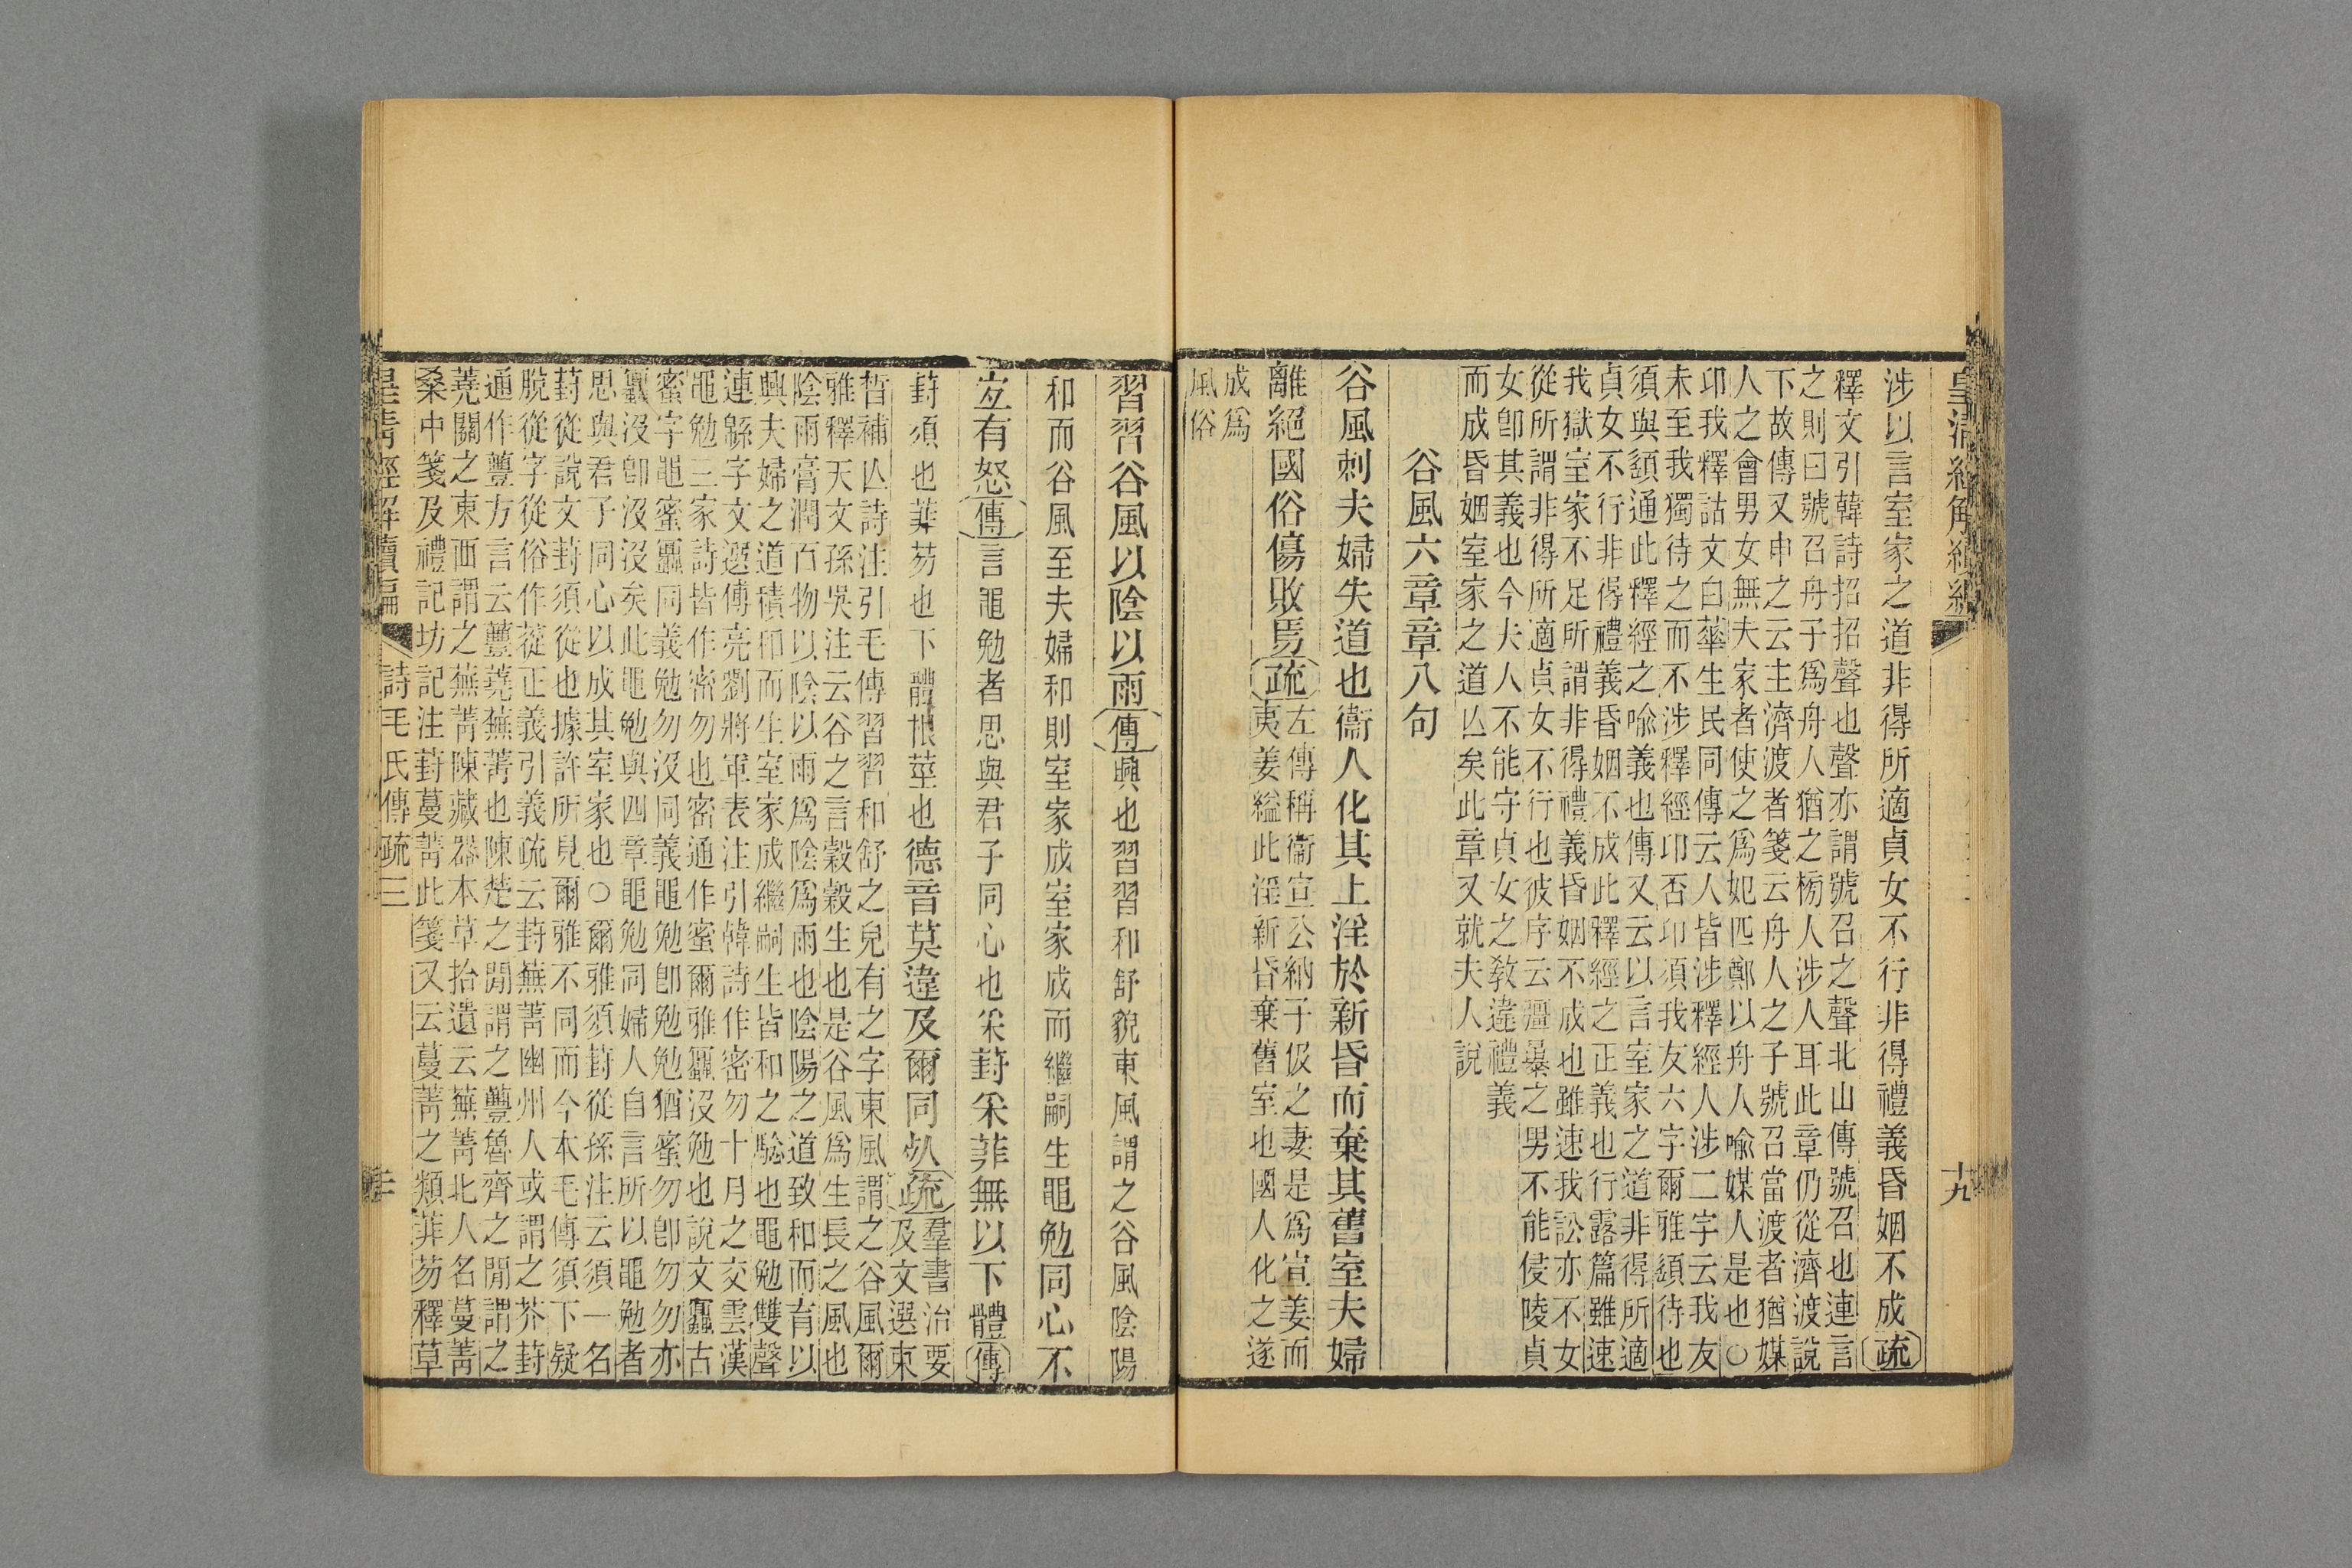 涉以言室家之道非得所適貞女不行非得禮義昏姻不成疏
釋文引韓詩招招聲也聲亦謂號召之聲北山傳號召也連言
之則曰號召舟子爲舟人猶之榜人涉人耳此章仍從濟渡說
下故傳又申之云主濟渡者箋云舟人之子號召當渡者猶媒
人之會男女無夫家者使之爲妃匹鄭以舟人喻媒人是也○
卬我釋詁文曰蓽生民同傳云人皆涉釋經人涉二字云我友
未至我獨待之而不涉釋經卬否卬須我友六字爾雅頷待也
須與頷通此釋經之喻義也傳又云以言室家之道非得所適
貞女不行非得禮義昏姻不成此釋經之正義也行露篇雖速
我獄室家不足所謂非得禮義昏姻不成也雖速我訟亦不女
從所謂非得所適貞女不行也彼序云彊暴之男不能侵陵貞
女卽其義也今夫人不能守貞女之敎違禮義
而成昏姻室家之道亾矣此章又就夫人說
谷風六章章八句
谷風刺夫婦失道也衞人化其上淫於新昏而棄其舊室夫婦
離絕國俗傷敗焉疏左傳稱衞宣公納子伋之妻是爲宣姜而
夷姜縊此淫新昏棄舊室也國人化之遂
成爲
風俗
十九
習習谷風以陰以雨傳興也習習和舒貌東風謂之谷風陰陽
和而谷風至夫婦和則室家成室家成而繼嗣生黽勉同心不
宐有怒傳言黽勉者思與君子同心也采葑采菲無以下體傳
葑須也菲芴也下體根莖也德音莫違及爾同死疏羣書治要
及文選束
晳補亾詩注引毛傳習習和舒之皃有之字東風謂之谷風爾
雅釋天文孫吳注云谷之言穀穀生也是谷風爲生長之風也
陰雨膏潤百物以陰以雨爲陰爲雨也陰陽之道致和而育以
興夫婦之道積和而生室家成繼嗣生皆和之驗也黽勉雙聲
連緜字文選傅亮劉將軍表注引韓詩作密勿十月之交雲漢
黽勉三家詩皆作密勿也密通作蜜爾雅蠠沒勉也說文蠠古
蜜字黽蜜蠠同義勉勿沒同義黽勉卽勉勉猶蜜勿卽勿勿亦
蠠沒卽沒沒矣此黽勉與四章黽勉同婦人自言所以黽勉者
思與君子同心以成其室家也○爾雅須葑從孫注云須一名
葑從說文葑須從也據許所見爾雅不同而今本毛傳須下疑
脫從字從俗作蓯正義引義疏云葑蕪菁幽州人或謂之芥葑
通作蘴方言云蘴蕘蕪菁也陳楚之閒謂之蘴魯齊之閒謂之
蕘關之東西謂之蕪菁陳藏器本草拾遺云蕪菁北人名蔓菁
桑中箋及禮記坊記注葑蔓菁此箋又云蔓菁之類菲芴釋草
皇淸經解續編 詩毛氏傳疏三